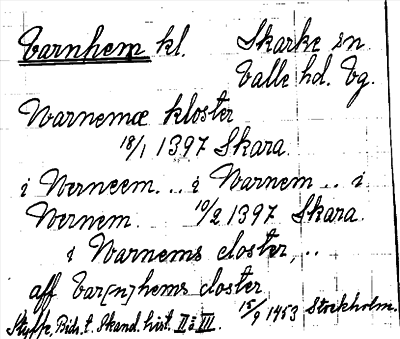 Varnhem kl. Skarke sn.
Valle hd. Vg.
Warnemæ kloster
18/1 1397 Skara.
i Werneem... i Warnem... i
Wernem. 10/2 1397 Skara.
i Warnems closter...
aff Var[n]hems closter
15/9 1453 Stockholm.
Styffe, Bidr. t. Skand. hist. II o. III.